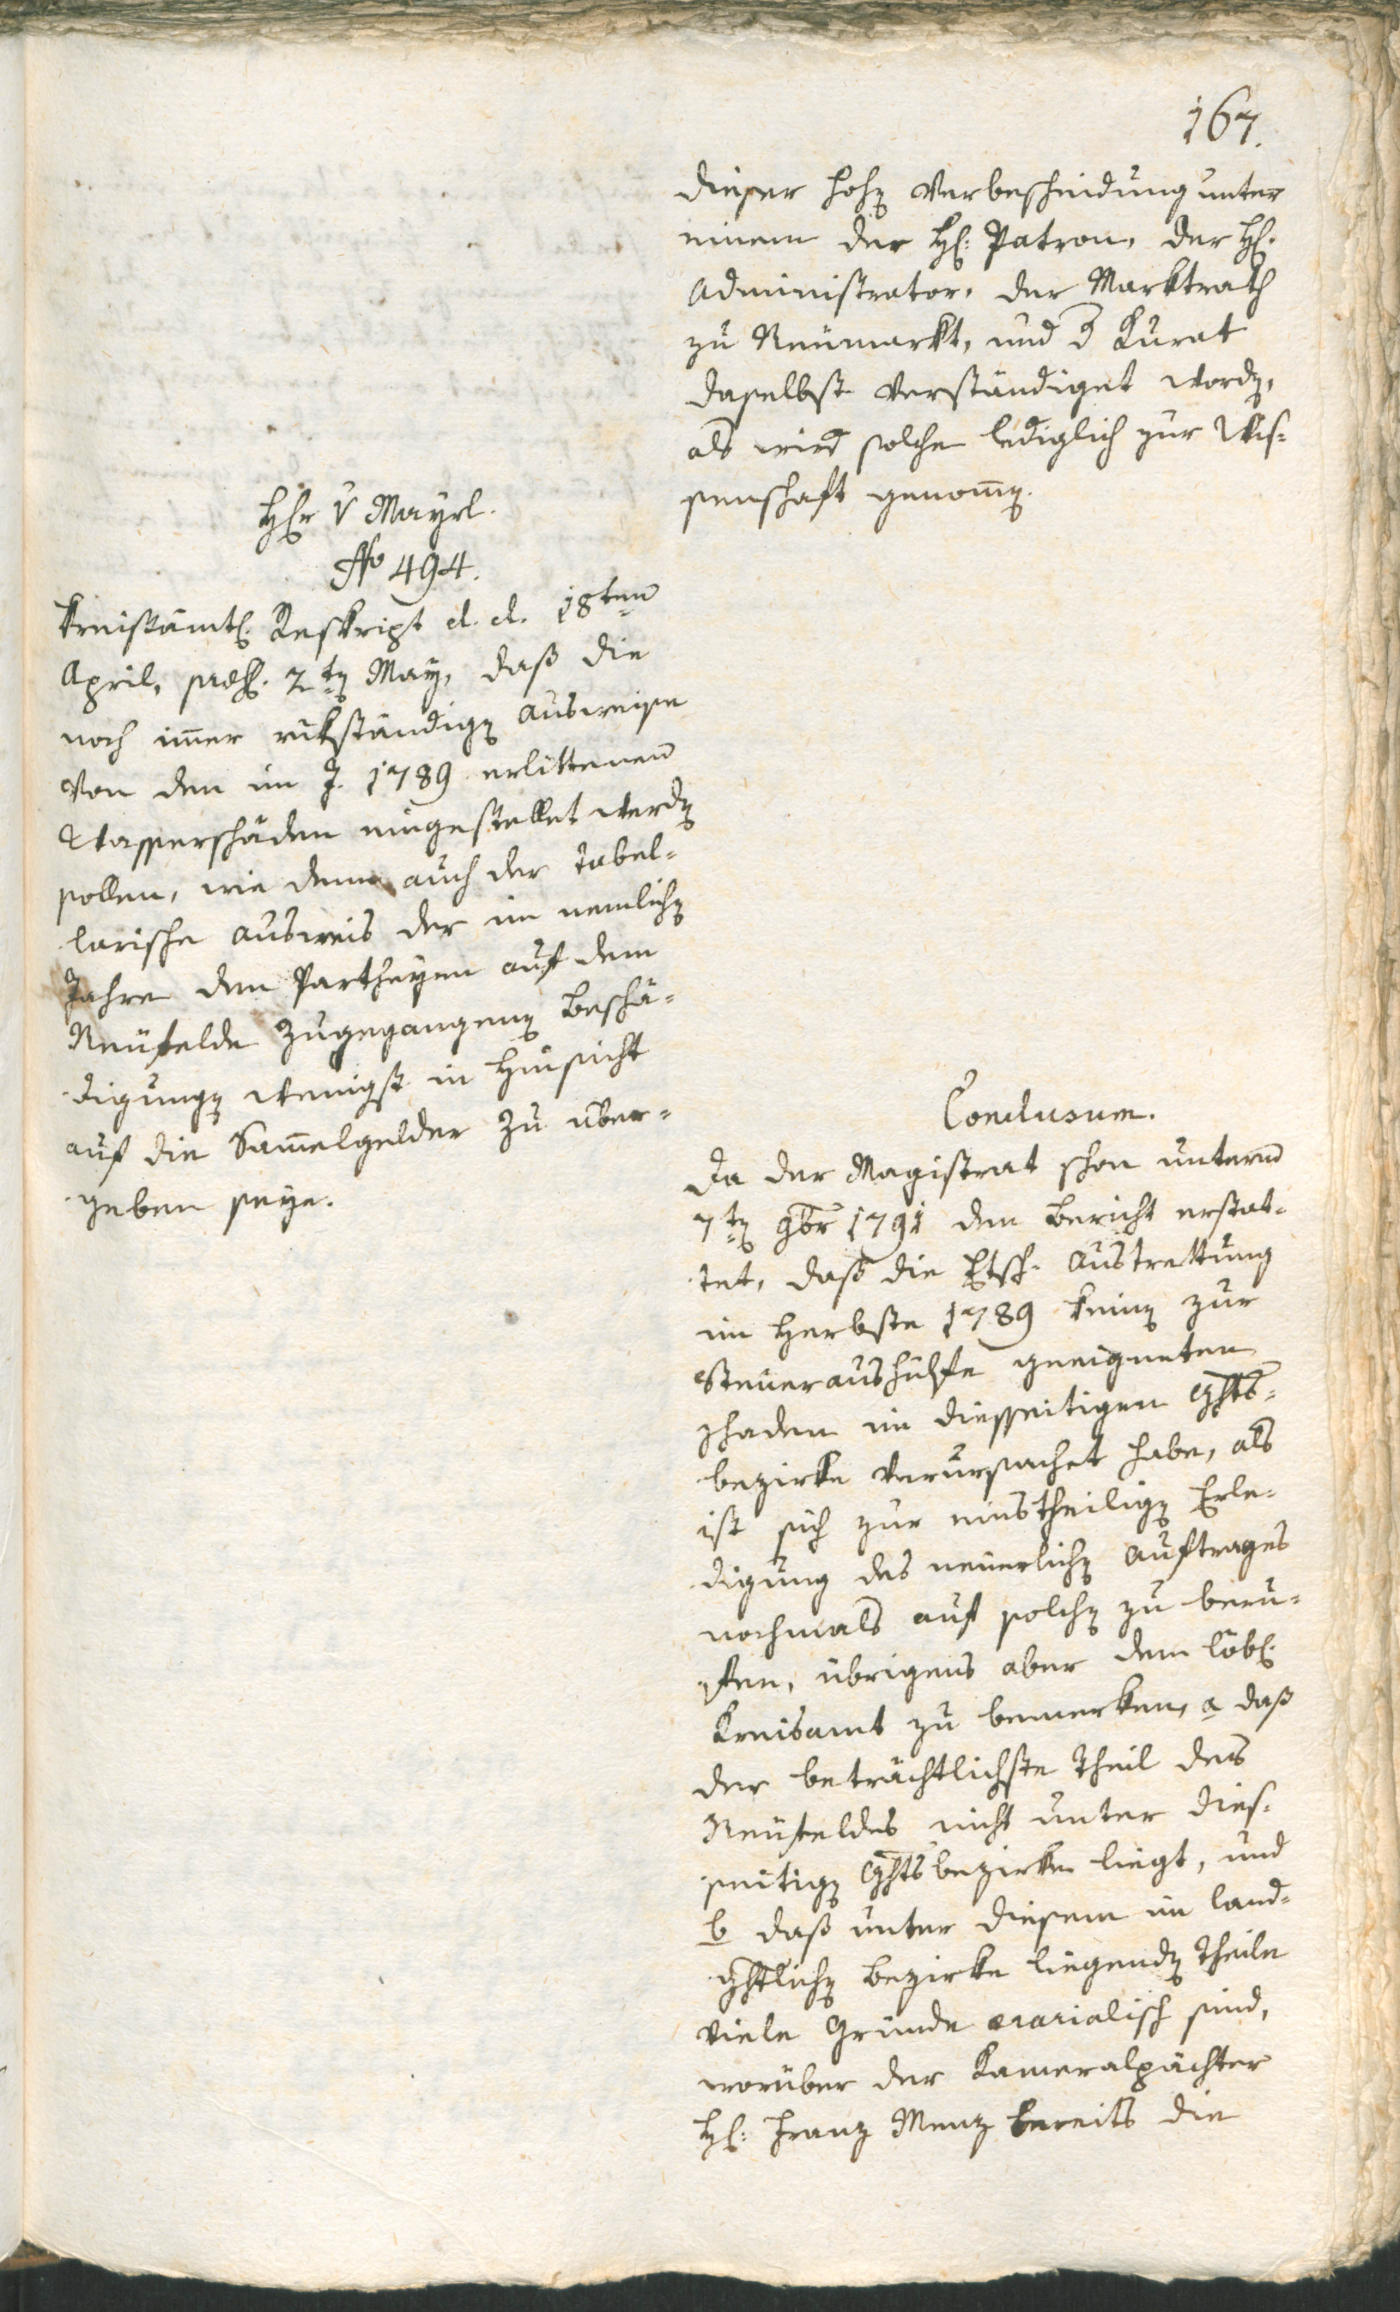 167.
dieser hohen Verbescheidung unter
einem der H: Patron, der H.
Administrator, der Marktrath
zu Neümarkt, und d Kurat
daselbst verständiget worden,
als wird solche lediglich zur Wis-
senschaft genomen.
Hr v Mayrl.
No 494.
Kreisämtl. Reskript d. d. 18ten
April, præs. 2ten May, daß die
noch imer rükständigen Ausweise
von den im J. 1789 erlittenen
Wasserschäden eingestellet werden
sollen, wie denn auch der tabel-
larische Ausweis der im nemlichen
Jahre den Partheyen auf dem
Neüfelde zugegangenen Beschä-
digungen wenigst in Hinsicht
auf die Samelgelder zu über-
geben seye.
Conclusum.
Da der Magistrat schon unterm
7ten 9br 1791 den Bericht erstat-
tet, daß die Etsch-Austrettung
im Herbste 1789 keinen zur
Steueraushülfe geeigneten
Schaden im diesseitigen Ghts-
bezirke verursachet habe, als
ist sich zur einstheiligen Erle-
digung des neuerlichen Auftrages
nochmals auf solchen zu beru-
fen, übrigens aber dem löbl.
Kreisamt zu bemerken, a daß
der beträchtlichste Theil des
Neüfeldes nicht unter dies-
seitigen Ghtsbezirke liegt, und
b daß unter diesem im land-
ghtlichen Bezirke liegenden Theile
viele Gründe ærarialisch sind,
worüber der Kameralpächter
H: Franz Menz bereits die